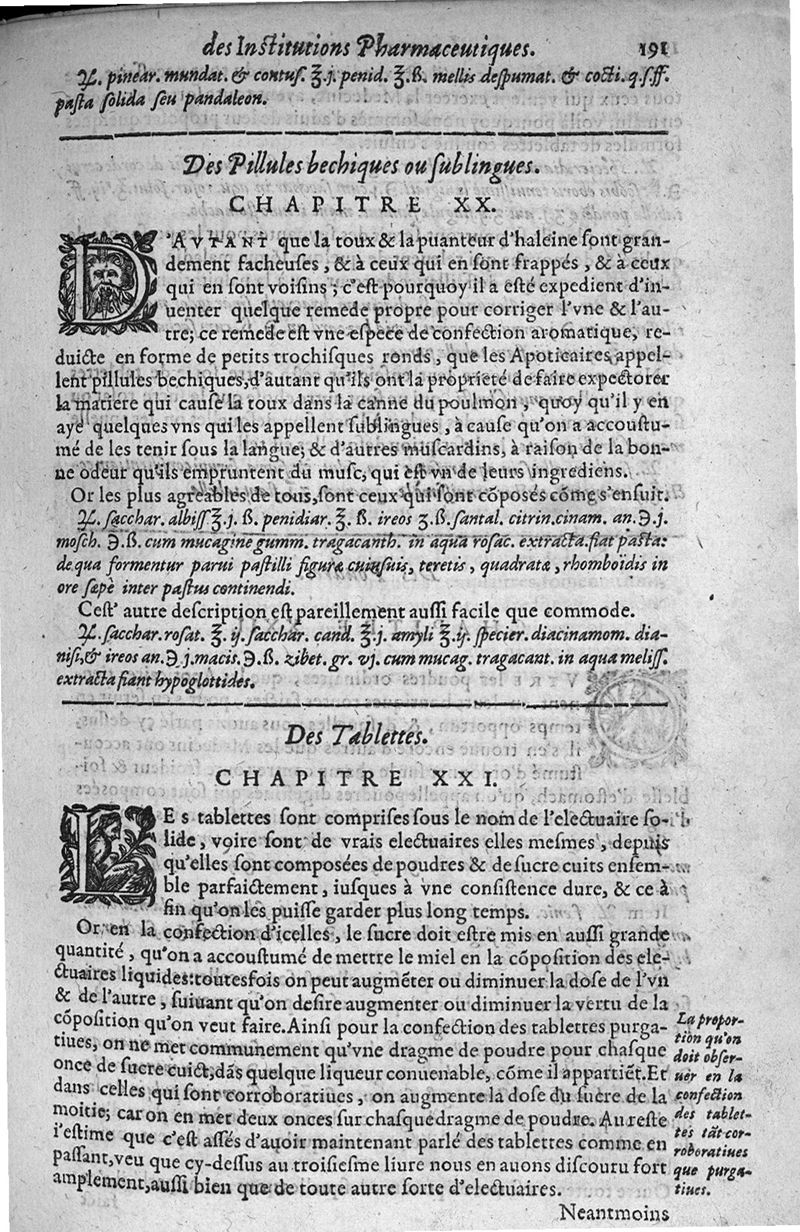 des Institutions Pharmaceutiques. 191
℞. pinear. mundat. & contus. ℥.j. penid. ℥.ß. mellis despumat. & cocti. q.s.ff.
pasta solida seu pandaleon.
Des Pillules bechiques ou sublingues.
CHAPITRE XX.
D'AVTANT que la toux & la puanteur d'haleine sont gran-
dement facheuses, & à ceux qui en sont frappés, & à ceux
qui en sont voisins; c'est pourquoy il a esté expedient d'in-
uenter quelque remede propre pour corriger l'vne & l'au-
tre; ce remede est vne espece de confection aromatique, re-
duicte en forme de petits trochisques ronds, que les Apoticaires appel-
lent pillules bechiques, d'autant qu'ils ont la proprieté de faire expectorer
la matiere qui cause la toux dans la canne du poulmon, quoy qu'il y en
aye quelques vns qui les appellent sublingues, à cause qu'on a accoustu-
mé de les tenir sous la langue; & d'autres muscardins, à raison de la bon-
ne odeur qu'ils empruntent du musc, qui est vn de leurs ingrediens.
Or les plus agreables de tous, sont ceux qui sont cõposés cõme s'ensuit.
℞. sacchar. albiss ℥.j. ß. penidiar. ℥. ß. ireos ʒ.ß. santal. citrin. cinam. an. ℈.j.
mosch. ℈.ß. cum mucagine gumm. tragacanth. in aqua rosac. extracta. fiat pasta:
de qua formentur parui pastilli figuræ cuiusuis, teretis, quadratæ, rhomboidis in
ore sæpè inter pastus continendi.
Cest' autre description est pareillement aussi facile que commode.
℞. sacchar. rosat. ℥. ij. sacchar. cand. ℥.j. amyli ℥.ij. specier. diacinamom. dia-
nisi, & ireos an. ℈ j. macis. ℈.ß. zibet. gr. vj. cum mucag. tragacant. in aqua meliss.
extracta fiant hypoglottides.
Des Tablettes.
CHAPITRE XXI.
LES tablettes sont comprises sous le nom de l'electuaire so-
lide, voire sont de vrais electuaires elles mesmes, depuis
qu'elles sont composées de poudres & de sucre cuits ensem-
ble parfaictement, iusques à vne consistence dure, & ce à
fin qu'on les puisse garder plus long temps.
Or en la confection d'icelles, le sucre doit estre mis en aussi grande
quantité, qu'on a accoustumé de mettre le miel en la cõposition des ele-
ctuaires liquides: toutesfois on peut augmẽter ou diminuer la dose de l'vn
& de l'autre, suiuant qu'on desire augmenter ou diminuer la vertu de la
cõposition qu'on veut faire. Ainsi pour la confection des tablettes purga-
tiues, on ne met communement qu'vne dragme de poudre pour chasque
once de sucre cuict, dãs quelque liqueur conuenable, cõme il appartiẽt. Et
dans celles qui sont corroboratiues, on augmente la dose du sucre de la
moitie; car on en met deux onces sur chasque dragme de poudre. Au reste
i'estime que c'est assés d'auoir maintenant parlé des tablettes comme en
passant, veu que cy-dessus au troisiesme liure nous en auons discouru fort
amplement, aussi bien que de toute autre sorte d'electuaires.
La propor-
tion qu'on
doit obser-
uer en la
confection
des tablet-
tes tãt cor-
roboratiues
que purga-
tiues.
Neantmoins